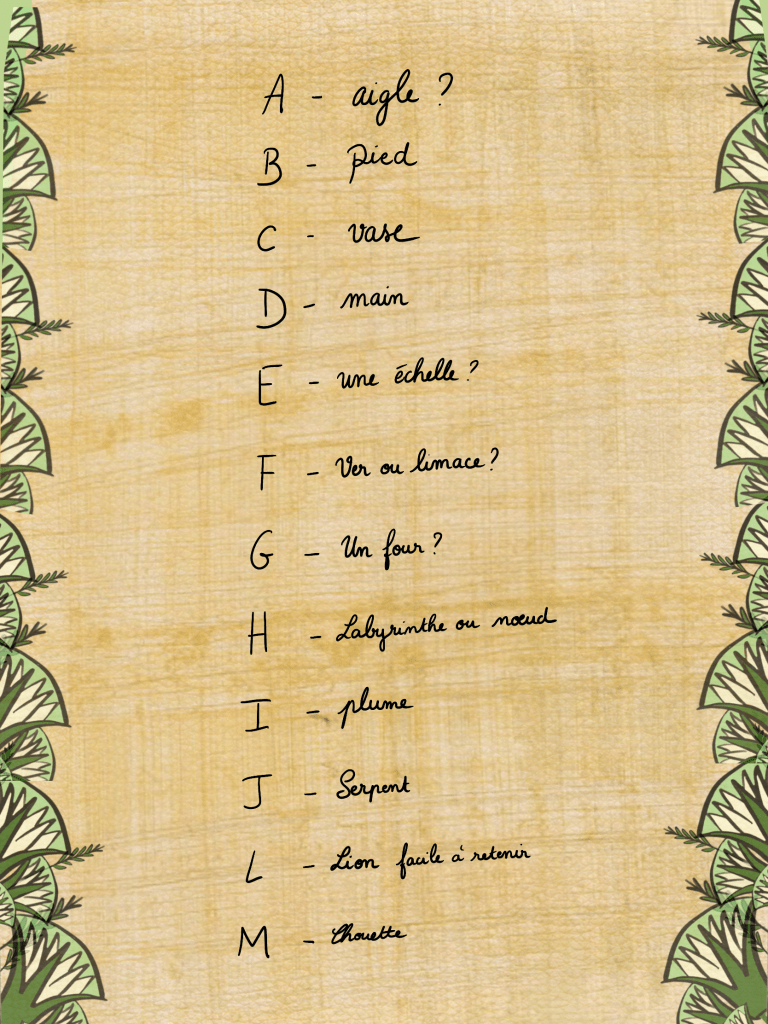 A - aigle ?
B - pied
C - vase
D - main
E - une échelle ?
F - Ver ou limace ?
G - Un four ?
H - Labyrinthe ou nœud
I - plume
J - Serpent
L - Lion facile à retenir
M - Chouette